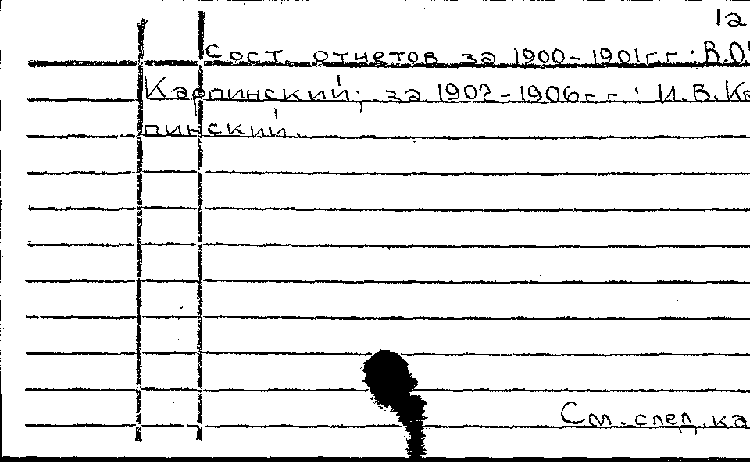 1а
Сост. отчетов за 1900-1901гг.: В.О.
Карпинский; за 1902-1906гг.: И.В. Ка
пинский.
См. след. ка